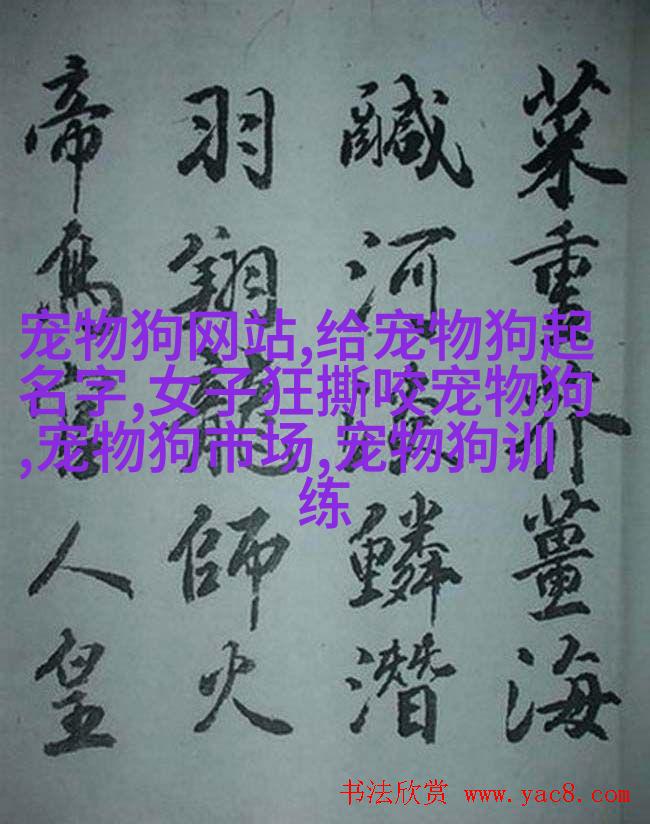 菜重芥薑海
鹹河淡鱗潛
羽翔龍師火
帝鳥官人皇
宠物狗网站,给宠物狗起
名字,女子狂撕咬宠物狗
,宠物狗市场,宠物狗训
练
书法欣赏 www.yac8.com